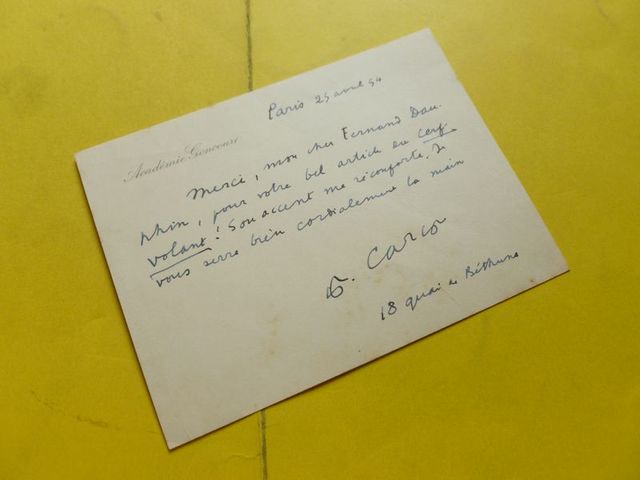 Paris 25 avril 54
Académie Goncourt
Merci, mon cher Fernand Dau-
phin, pour votre bel article du cerf-
volant ! Son accent me réconforte. Je
vous serre bien cordialement la main
F. Carco
18 quai de Béthune